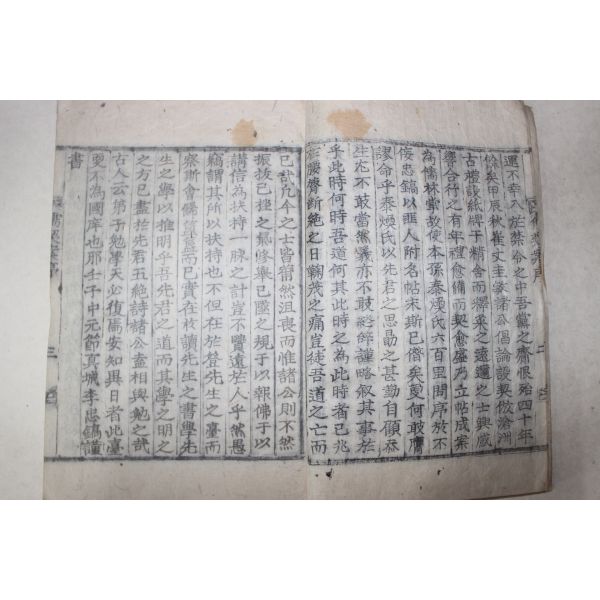 運不幸入於禁令之中吾黨之齋恨殆四十年
餘矣甲辰秋崔丈圭象諸公倡論設契倣滄洲
古禮設紙牌于精舍而禊采之遠邇之士興感
響合行之有年禮愈備而契愈盛乃立帖成案
為儒林掌故使本孫泰煥氏六百里問序於不
侫忠鎬以匪人附名帖末斯已僭矣夏何敢膺
謬命乎泰煥氏以先君之思勖之甚勤自顧忝
生北不敢當然義亦不敢終辭謹略叙其事於
乎此時何時吾道何其此時之為此時者已兆
於腰膂斷絶之日鞠茂之痛豈徒吾道之亡而
已哉凡今之士皆嗒然沮喪而惟諸公則不然
振拔已挫之氣修舉已墜之規于以報佛于以
講信為扶持一脉之計豈不豐遺於人乎然愚
竊謂其所以扶持也不但在於登先生之臺而
察斯會脩籩簋而已實在於讀先生之書學先
生之學以推明乎吾先君之道而其學之明之
之方已盡於先君五絶詩諸公盍相與勉之哉
古人云弟子勉學天必復焉安知異日者此臺
更不為國庠也耶壬子中元節真城李忠鎬謹
書
二
三